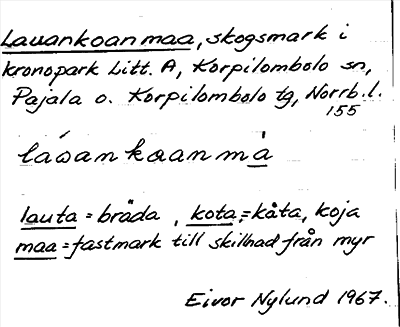 Lauankoanmaa, skogsmark i
kronopark Litt. A, Korpilombolo sn,
Pajala o. Korpilombolo tg, Norrb. l.
155
láoankoanmà
lauta = bräda, kota = kåta, koja
maa = fastmark till skillnad från myr
Eivor Nylund 1967.